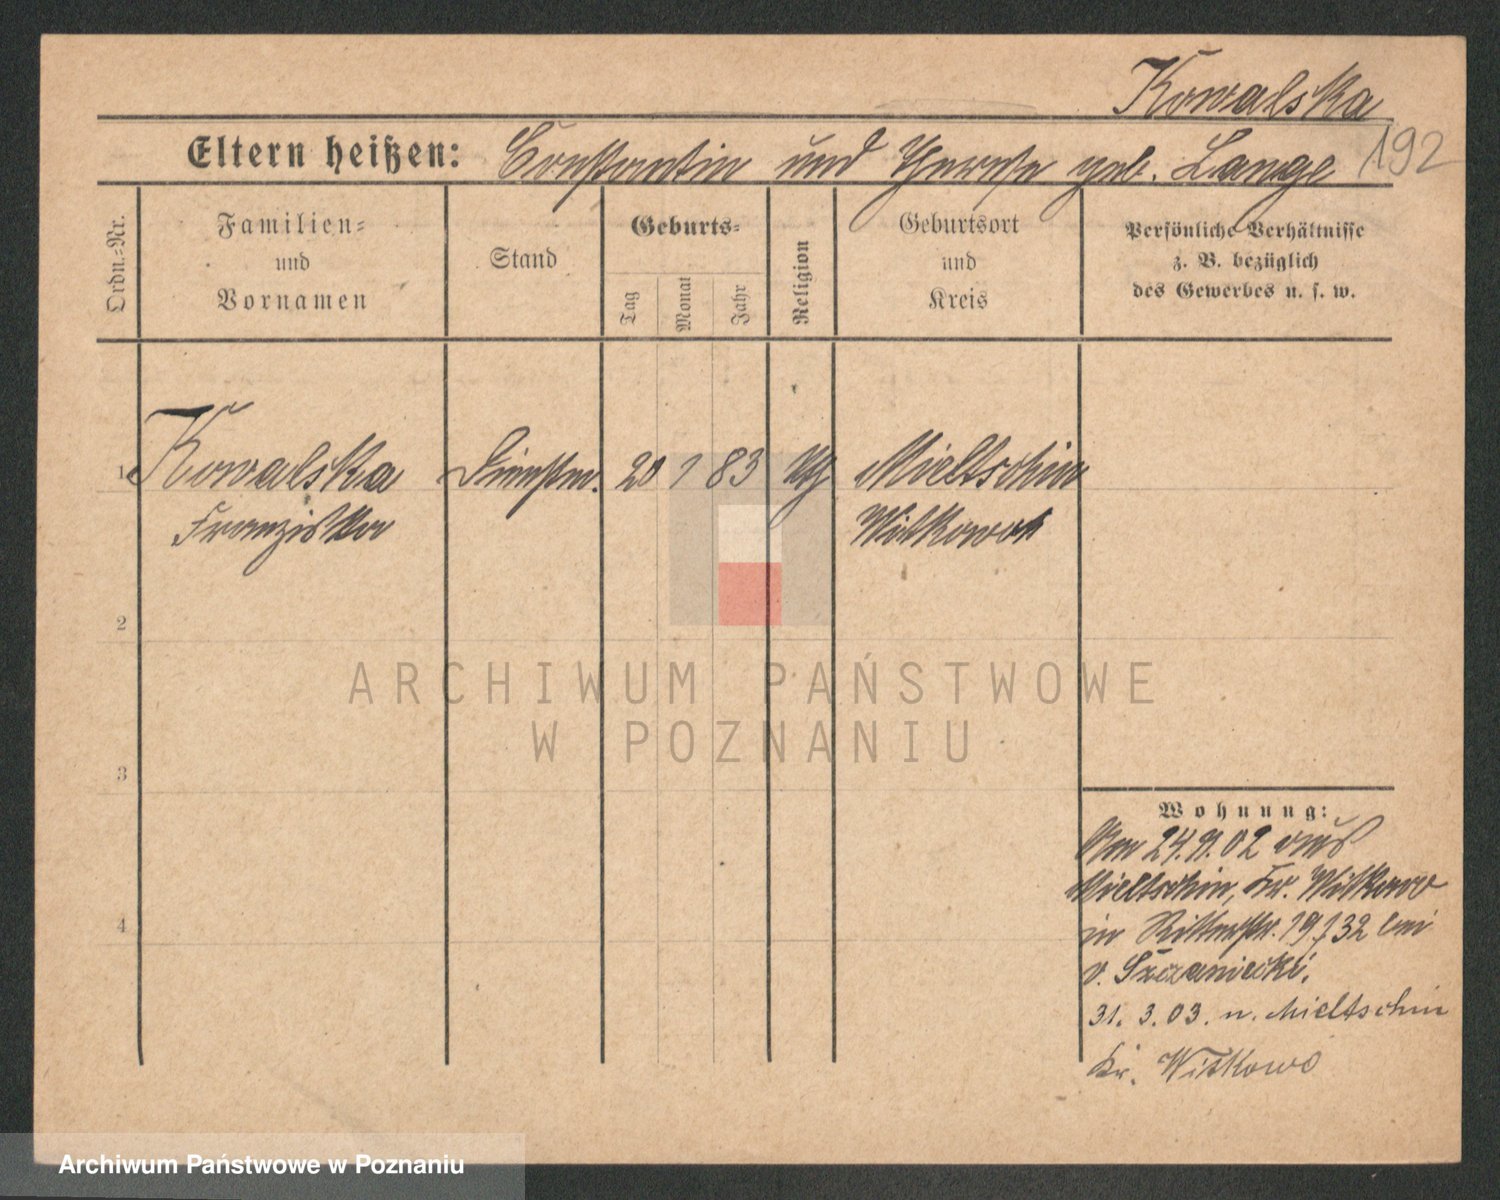 Kowalska
192
Eltern heißen: Constantin und Therese geb. Lange
Ordn.-Nr.
Familien-
und
Vornamen
Stand
Geburts-
Tag
Monat
Jahr
Religion
Geburtsort
und
Kreis
Persönliche Verhältnisse
z. B. bezüglich
des Gewerbes u. s. w.
1 Kowalska Dienstm. 20 1 83 Mieltschin
Franziska Witkowo
2
3
4
ARCHIWUM PAŃSTWOWE
W POZNANIU
Wohnung:
Am 24.9.02 aus
Mieltschin, Kr. Witkowo
in Ritterstr. 19/32 bei
v. Szczaniecki.
31. 3. 03. n. Mieltschin
Kr. Witkowo
Archiwum Państwowe w Poznaniu